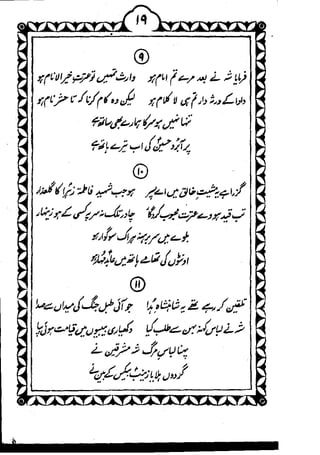 ۱۹
۹
فرمایا شہ نے بعد مرے تم امام ہو وارث تمہیں تو عترتِ خیرالانام ہو
دادا کے ورثہ دار تم ہی لا کلام ہو لیکن وہ کام کرنا کہ تا حشر نام ہو
تنہا نہیں ہو سر کا ہمارے بھی ساتھ ہے
پر آبرو حسینؑ کی اب تیرے ہاتھ ہے
۱۰
گزرا ہے مشیتِ خالق میں اے پسر ہو جب شہید فاطمہ زہراؑ کا گلعذار
تب قید ہووے عترتِ محبوبِ کردگار چادر تلک نہ سر پہ کسی کے ہو زینہار
بلوے میں سر برہنہ ہر اک سوگوار ہو
اونٹوں کی تھامے ہاتھ میں عابد مہار ہو
۱۱
تلقین کر رہے تھے یہ شاہنشاہِ ہدا جو آئی طبلِ جنگ کی میداں سے صدا
شہ نے لباسِ کہنہ بہن سے طلب کیا دکھیاری بیبیوں میں قیامت ہوئی بپا
پہنا لباسِ مرگ شہِ مشرقین نے
گردوں ہلایا زینبِ بیکس کے بین نے